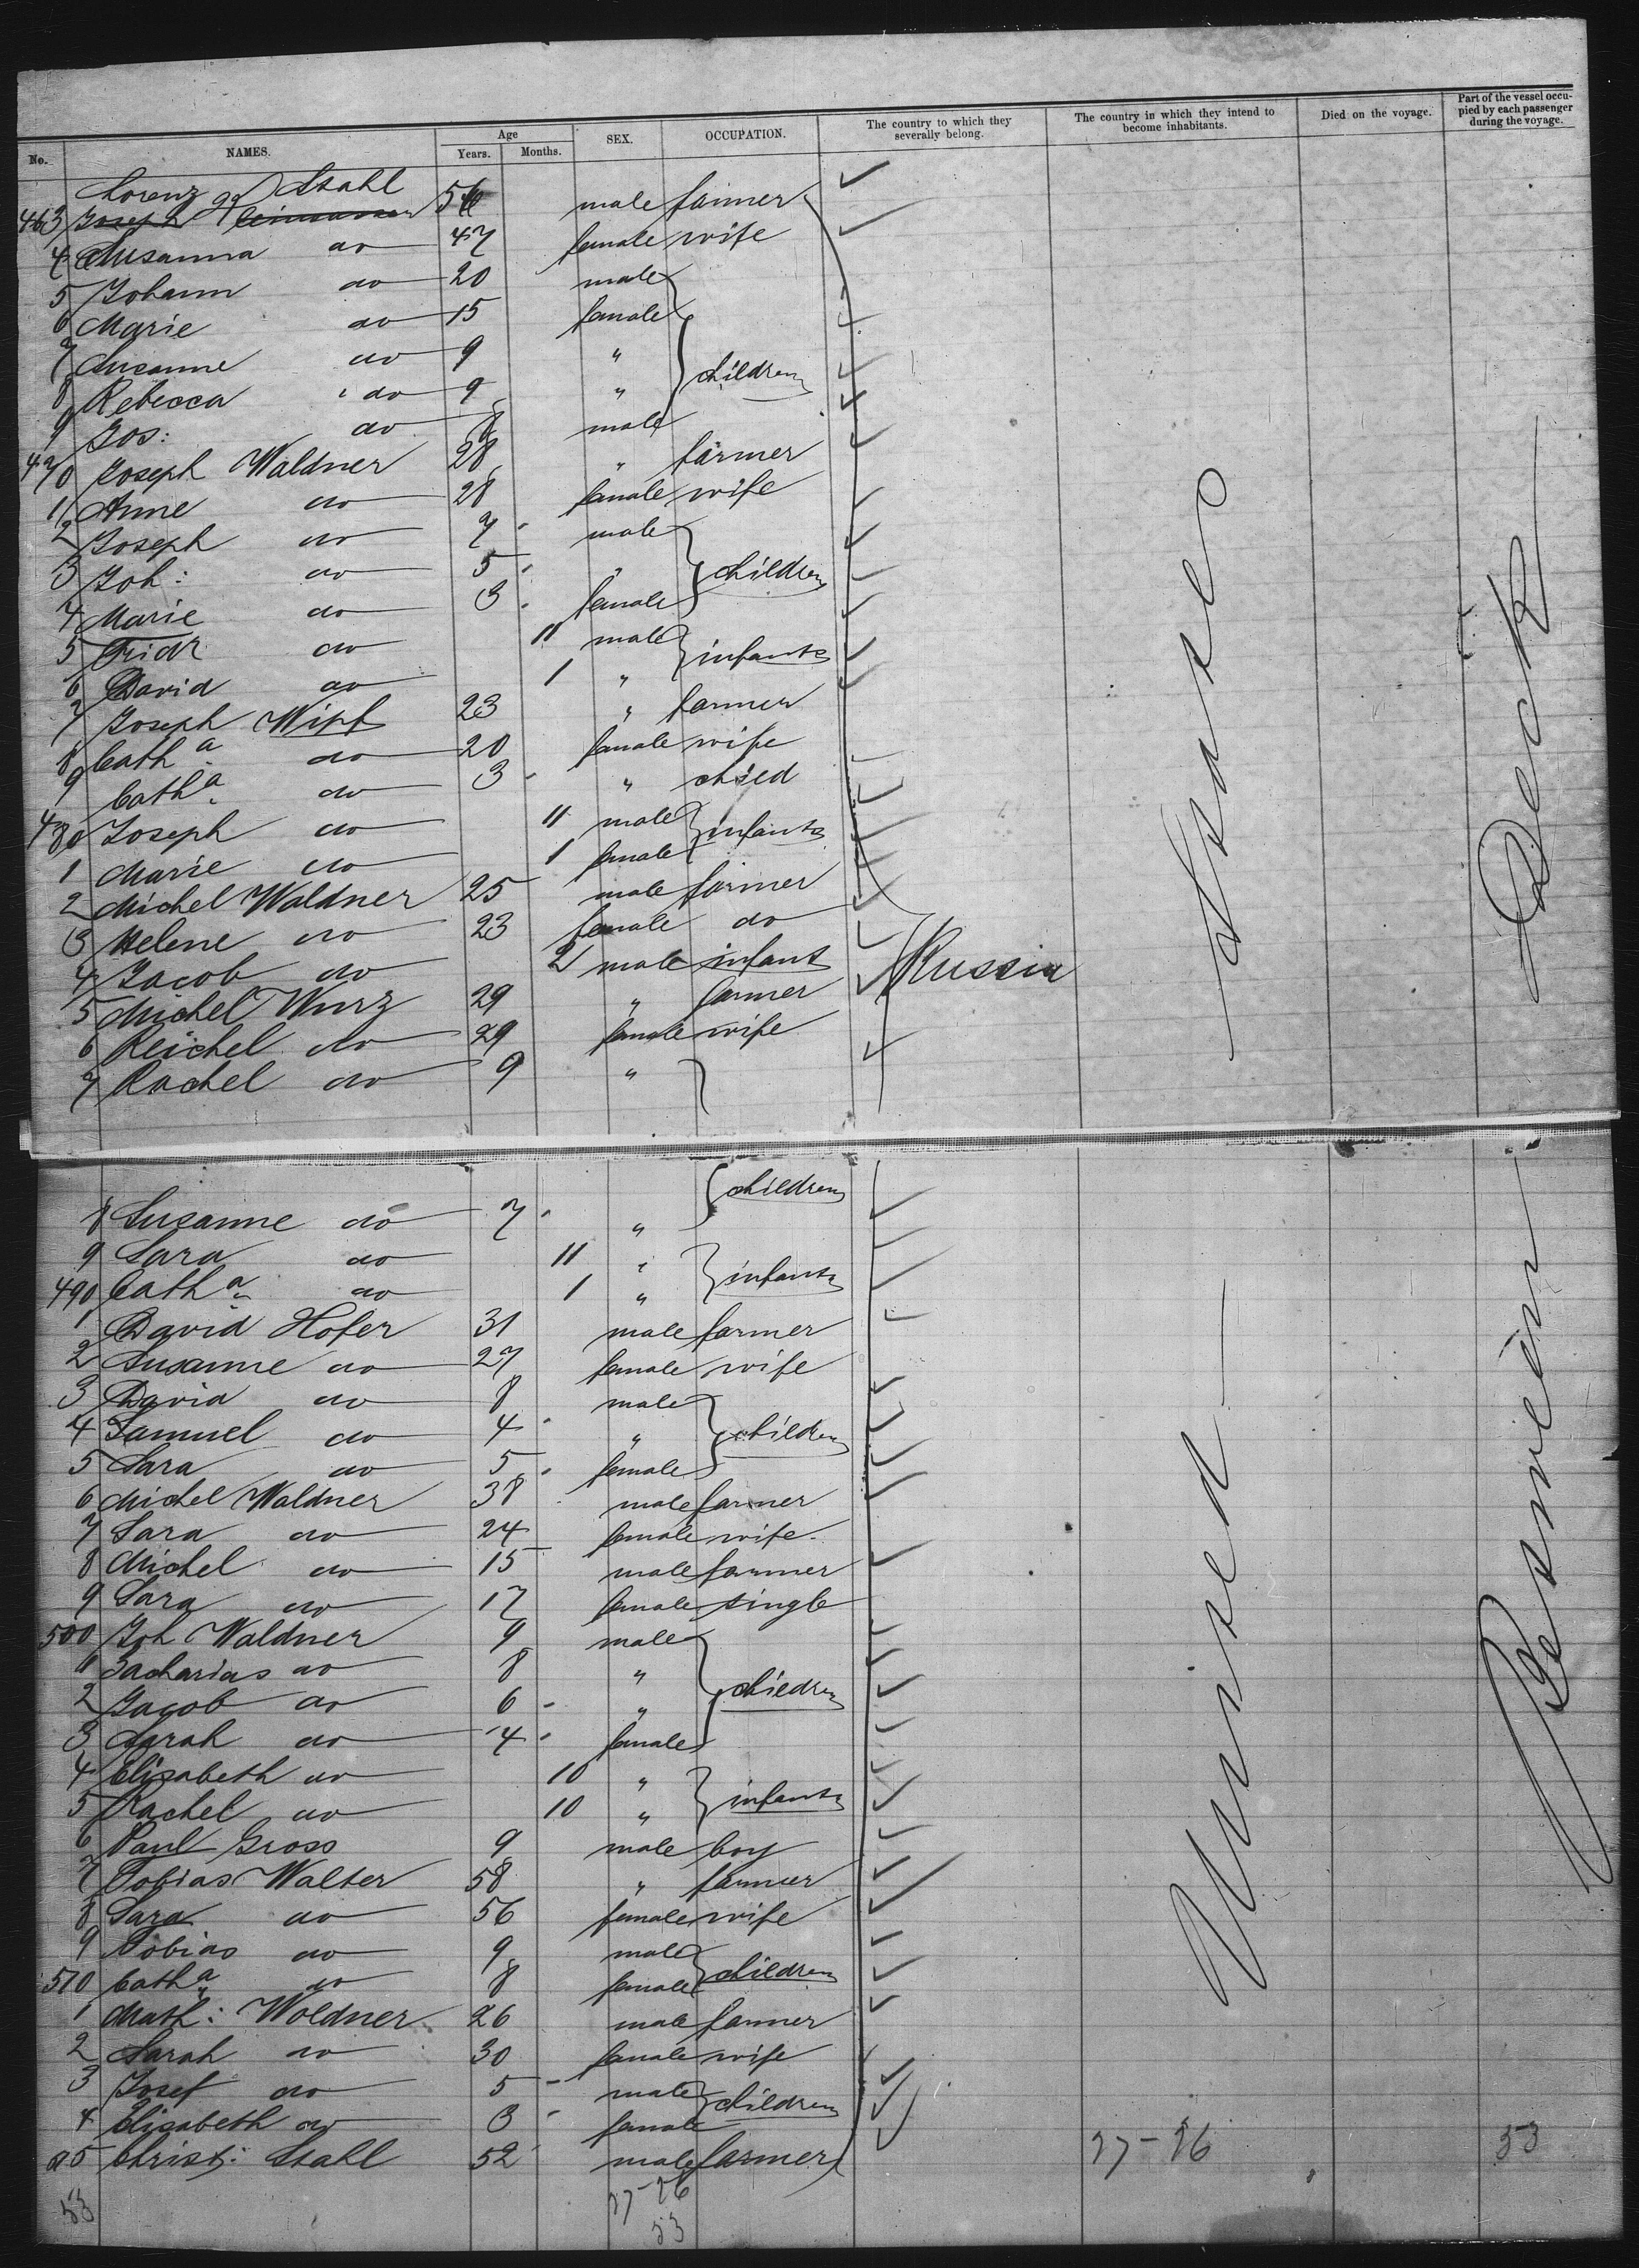 No. NAMES. Age Years. Months. SEX. OCCUPATION. The country to which they severally belong. The country in which they intend to become inhabitants. Died on the voyage. Part of the vessel occupied by each passenger during the voyage.
Lorenz Stahl
463 Joseph 54 male farmer
4 Susanna do 47 female wife
5 Johann do 20 male
6 Marie do 15 female
7 Susanne do 9 "
8 Rebecca do 9 " children
9 Jos: do 8 male
470 Joseph Waldner 28 " farmer
1 Anne do 28 female wife
2 Joseph do 7 male
3 Joh: do 5 " children
4 Marie do 3 female
5 Fridr do 11 male
6 David do 1 " infants
7 Joseph Wipf 23 " farmer
8 Cath a do 20 female wife
9 Cath a do 3 " child
480 Joseph do 11 male infants
1 Marie do 1 female
2 Michel Waldner 25 male farmer
3 Helene do 23 female do
4 Jacob do 2 male infant Russia
5 Michel Wurz 29 " farmer
6 Reichel do 29 female wife
7 Rachel do 9 "
8 Susanne do 7 " children
9 Sara do 11 "
490 Cath a do 1 " infants
1 David Hofer 31 male farmer
2 Susanne do 27 female wife
3 David do 8 male
4 Samuel do 4 " children
5 Sara do 5 female
6 Michel Waldner 38 male farmer
7 Sara do 24 female wife
8 Michel do 15 male farmer
9 Sara do 17 female single
500 Joh Waldner 9 male
1 Zacharias do 8 "
2 Jacob do 6 " children
3 Sarah do 4 female
4 Elisabeth do 10 "
5 Rachel do 10 " infants
6 Paul Gross 9 male boy
7 Tobias Walter 58 " farmer
8 Sara do 56 female wife
9 Tobias do 9 male
510 Cath a do 8 female children
1 Math: Woldner 26 male farmer
2 Sarah do 30 female wife
3 Josef do 5 male
4 Elisabeth do 3 female children
5 Christ: Stahl 52 male farmer
United States
Deck
27-26 53
53 27-26
53